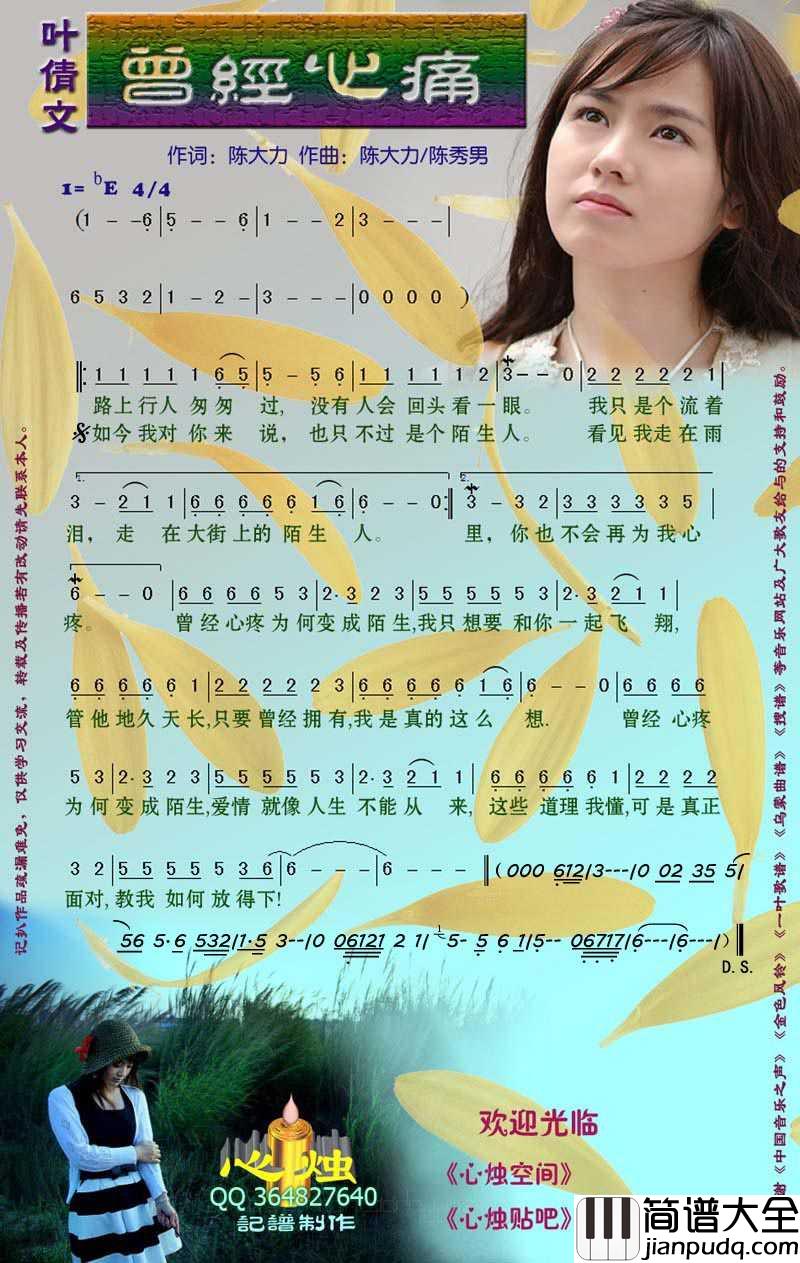 叶倩文
曾經心痛
作词：陈大力 作曲：陈大力/陈秀男
1= ᵇE 4/4
(1 - - 6|5 - - 6|1 - - 2|3 - - -|
6 5 3 2|1 - 2 -|3 - - -|0 0 0 0 )
‖: 1 1 1 1 1 6 5|5 - 5 6|1 1 1 1 1 1 2|3 - - 0|2 2 2 2 2 1
路上行人 匆匆 过, 没有人会 回头看一眼。 我只是个流着
如今我对 你来 说, 也只不过 是个陌生人。 看见我走在雨
1. 2.
3 - 2 1 1|6 6 6 6 6 1 6|6 - - 0:‖3 - 3 2|3 3 3 3 3 5
泪, 走 在大街上的 陌生 人。 里, 你也不会再为我心
6 - - 0|6 6 6 6 5 3|2· 3 2 3|5 5 5 5 5 3|2· 3 2 1 1
疼。 曾经心疼为何变成陌生,我只想要和你一起飞 翔,
6 6 6 6 6 1|2 2 2 2 2 3|6 6 6 6 6 1 6|6 - - 0|6 6 6 6
管他地久天长,只要曾经拥有,我是真的这么 想. 曾经心疼
5 3|2· 3 2 3|5 5 5 5 5 3|2· 3 2 1 1|6 6 6 6 6 1|2 2 2 2
为何变成陌生,爱情就像人生不能从 来, 这些道理我懂,可是真正
3 2|5 5 5 5 5 3 6|6 - - -|6 - - -‖(000 612/3---/0 02 35 5/
面对,教我 如何放得下!
56 5·6 532/1·5 3--/0 06121 2 1/ 5- 5 6 1/5-- 06717/6---/6---/)‖
D.S.
记扒作品疏漏难免，仅供学习交流，转载及传播若有改动请先联系本人。
谢《中国音乐之声》《金色风铃》《一叶歌谱》《乌家曲谱》《搜谱》等音乐网站及广大歌友给与的支持和鼓励。
心烛
QQ 364827640
記譜制作
欢迎光临
《心烛空间》
《心烛贴吧》
简谱大全
jianpudq.com